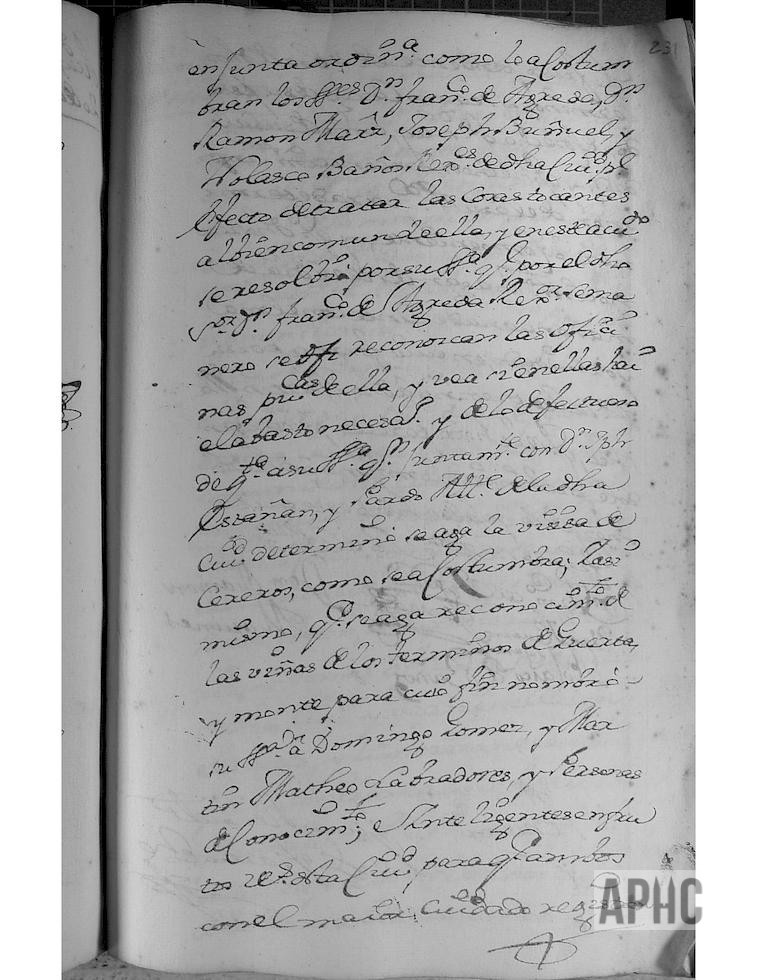 231
en Junta ordin.ª como lo acostum
bran los SS.es D.n fran.co de Agreda, D.n
Ramon Marz, Joseph Buñuel, y
Nolasco Baños Rex.es de dha Ciu.d pl
efecto de tratar las Cosas tocantes
al bien comun de ella, y en este acu.do
se resolbio por su SS.ª q.e por el dho
S.or D.n fran.co de Agreda Rex.or sema
nero se reconozcan las ofici
nas pu.cas de ella, y vea si en ellas hai
el abasto necesa.º y de lo defectuoso
de q.ta a su SS.ª q.n Juntam.te con D.n Jph
Estañan, y Pardo Alc.e de la dha
Ciu.d determino se aga la visita de
Cereros, como se a Costumbra; y assi
mismo, q.e se aga reconocim.to de
las viñas de los terminos de Guerta,
y monte para cuio fin nombrò
su SS.ria à Domingo Gomez, y Mar
tin Matheo Labradores, y Personas
de Conocim.to, e Intelixentes en fru
tos vez.s de esta Ciu.d para q.e ambos
con el maior Cuidado rexistren
APHC